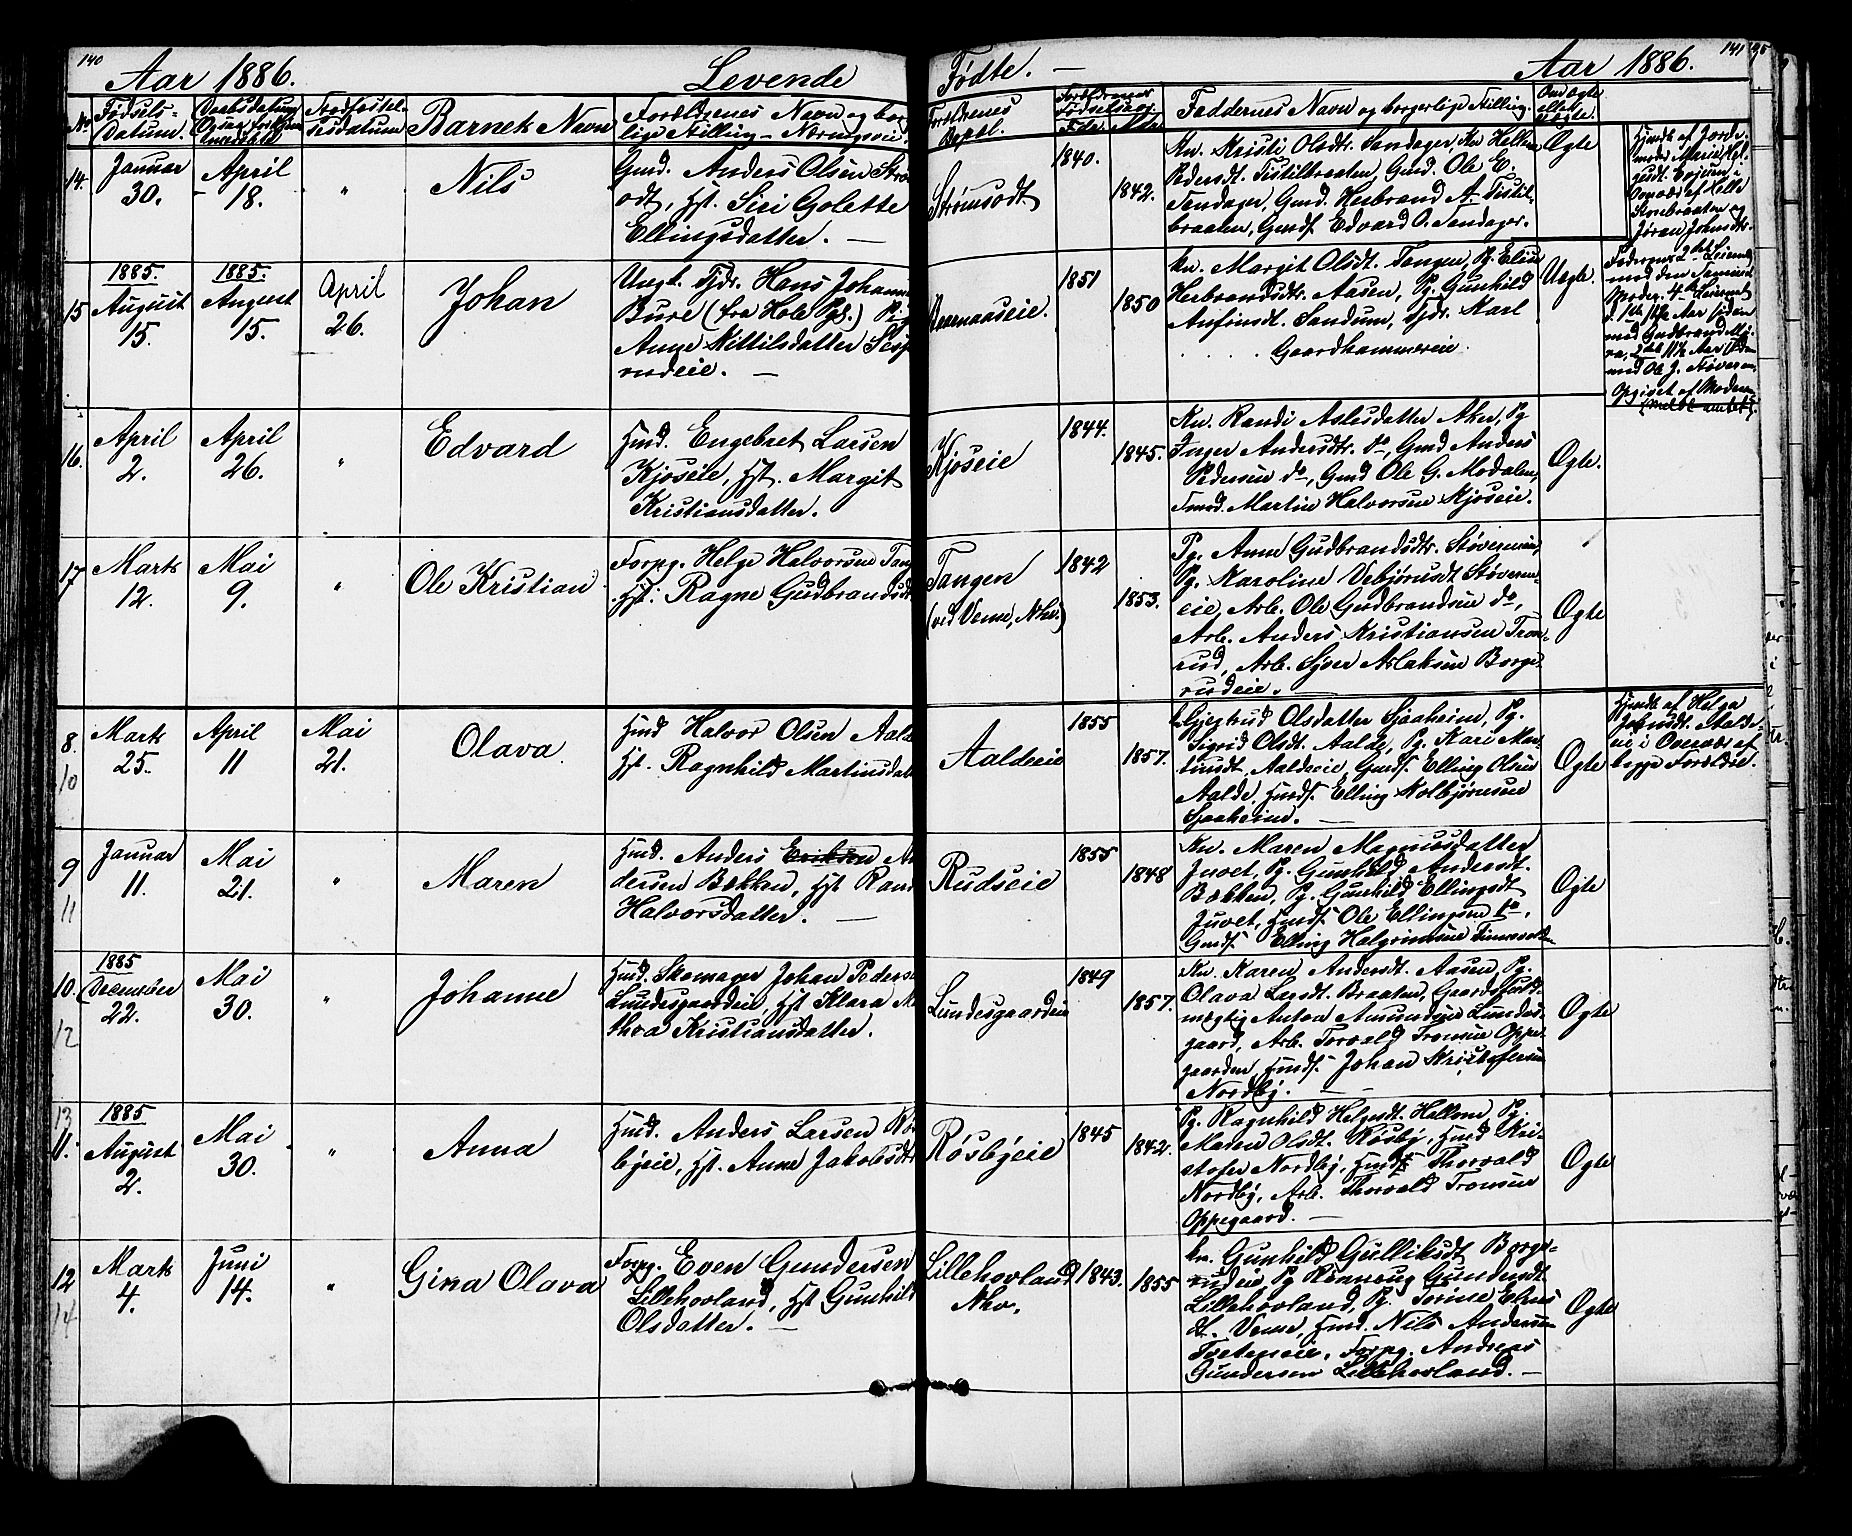 140
Aar 1886.
Levende
Fødte.
Aar 1886.
141
No.
Fødsels-
Datum.
Daabsdatum
Stadfæstel-
sesdatum
Barnets Navn
Forældrenes Navn og bor-
lige Stilling - Næringsvei
Forældrenes
Bopæl.
Forældrenes
Fødselsaar
Fdr. Mdr.
Faddernes Navn og borgerlige Stilling.
Om ægte
eller
uægte.
14.
Januar
30.
April
18.
"
Nils
Gmd. Anders Olsen Strøms
odt, Hst. Siri Golette
Ellingsdatter. —
Strømsodt
1840.
1842.
Kn. Kristi Olsdtr. Sandager, Kn Hellen
Pedersdt. Tistilbraaten, Gmd. Ole E.
Sandager, Gmd. Herbrand A. Tistil-
braaten, Gmdsf. Edvard O. Sandager.
Ægte
Hjemdt. af Jorde-
moder Marie
i
Overvær af Helle
og
Jøran Johnsdtr.
15
1885.
August
15.
1885.
August
15.
April
26.
Johan
Ungk. Tjdr. Hans Johannes
Bure (fra Hole Pgj.) Pig
Anne Kittilsdatter
rudeie. —
1851
1850
Kn. Margit Olsdt. Tangen, Pg. Elin
Herbrandsdtr. Aasen, Pg. Gunhild
Anfinsdt. Sandum, Tjdr. Karl
Gaardhammereie
Uægte.
Faderens 2det Leiermaal
med den samme
Moder. 4de Leiermaal
Aar siden
med Gudbrand
2det 11½ Aar siden
med Ole J. Støveren,
Opgivet af Moderen
16.
April
2.
April
26.
"
Edvard
Hmd. Engebret Larsen
Kjøseie, Hst. Margit
Kristiansdatter.
Kjøseie
1844.
1845.
Kn. Randi Aslesdatter Aker, Pg
Inger Andersdtr. do, Gmd Anders
Pedersen do, Gmd Ole G. Modalen,
Fmd. Martin Halvorsen Kjøseie.
Ægte.
17
Marts
12.
Mai
9.
"
Ole Kristian
Forpg. Helge Halvorsen Tang
Hst: Ragne Gudbrandsdt
Tangen
(ved Veme, Nhv.)
1842
1853.
Pg. Anne Gudbrandsdtr. Støverneie,
Pg. Karoline Vebjørnsdt Støveren-
eie, Arb. Ole Gudbrandsen do,
Arb. Anders Kristiansen Tron-
rud, Arb. Iver Aslaksen Borge-
rudeie.
Ægte
8.
10
Marts
25.
April
11
Mai
21.
Olava
Hmd Halvor Olsen Aald
Hst. Ragnhild Martinsdatt
Aaldeeie
1855
1857.
Gjertrud Olsdatter Sjaaheim, Pg.
Sigrid Olsdt. Aalde, Pg. Kari Mar-
tinsdt. Aaldeeie, Gmdsf. Elling Olsen
Aalde, Hmdsf. Elling Kolbjørnsen
Sjaaheim. —
Ægte
Hjemdt. af Helga
Johnsdt. Aalde-
eie i Overvær af
begge Forældre.
9
11
Januar
11.
Mai
21.
"
Maren
Hmd. Anders Eriksen An
dersen Bækken, Hst Rand
Halvorsdatter. —
Rudseie
1855
1848
Kn. Maren Magnusdatter
Juvet, Pg. Gunhild Andersdt.
Bækken, Pg. Gunhild Ellingsdt
Juvet, Hmdsf. Ole Ellingsen do,
Gmdsf. Elling Halgrimsen
Ægte
10.
12
1885
December
22.
Mai
30.
"
Johanne
Hmd. Skomager Johan Peders
Lundesgaardeie, Hst Klara Ma
thea Kristiansdatter.
Lundesgaardeie
1849
1857.
Kn. Karen Andersdt. Aasen, Pg.
Olava Larsdt. Braaten, Gaardsfuld-
mægtig Anton Amundsen Lundes-
gaard, Arb. Torvald Tronsen Oppe-
gaarden, Hmdsf. Johan Kristofersen
Nordby. —
Ægte
13
11.
1885
August
2.
Mai
30.
"
Anna
Hmd. Anders Larsen Røs
byeie, Hst. Anne Jakobsdtr
Røsbyeie
1845
1842.
Pg. Ragnhild Helgesdt. Hellom, Pg.
Maren Olsdt. Røsby, Hmd Kri-
stofer Nordby, Hmdsf. Thorvald
Nordby, Arb. Thorvald Tronsen
Oppegaard. —
Ægte
12
14
Marts
4.
Juni
14.
"
Gina Olava
Forpg. Even Gundersen
Lillehovland, Hst Gunhild
Olsdatter. —
Lillehovland
Nhv.
1843.
1855
Kn. Gunhild Gulliksdt. Borge-
rudeie, Pg Rønnaug Gundersdt
Lillehovland, Pg. Torine Elias
dt. Veme, Hmd. Nils Andersen
Tveteneie, Forpg. Andreas
Gundersen Lillehovland. —
Ægte